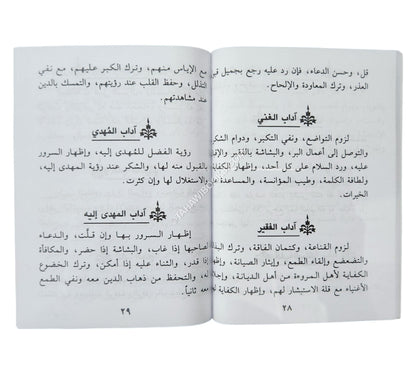 قل، وحسن الدعاء، فإن رد عليه رجع بجميل قبول
العذر، وترك المعاودة والإلحاح.
آداب الغني
لزوم التواضع، ونفي التكبر، ودوام الشكر،
والتوصل إلى أعمال البر، والبشاشة بالفقير والإقبال
عليه، ورد السلام على كل أحد، وإظهار الكفاية،
ولطافة الكلمة، وطيب المؤانسة، والمساعدة على
الخيرات.
آداب الفقير
لزوم القناعة، وكتمان الفاقة، وترك البذلة
والتضعضع وإلقاء الطمع، وإيثار الصيانة، وإظهار
الكفاية لأهل المروءة من أهل الديانة، وإجلال
الأغنياء مع قلة الاستبشار لهم، وإظهار الكفاية لهم
٢٨
مع الإياس منهم، وترك الكبر عليهم، مع نفي
التذلل، وحفظ القلب عند رؤيتهم، والتمسك بالدين
عند مشاهدتهم.
آداب المُهدي
رؤية الفضل للمُهدى إليه، وإظهار السرور
بالقبول منه لها، والشكر عند رؤية المهدى إليه،
والاستقلال لها وإن كثرت.
آداب المهدى إليه
إظهار السرور بها وإن قلّت، والدعاء
لصاحبها إذا غاب، والبشاشة إذا حضر، والمكافأة
إذا قدر، والثناء عليه إذا أمكن، وترك الخضوع
له، والتحفظ من ذهاب الدين معه ونفي الطمع
معه ثانياً.
٢٩